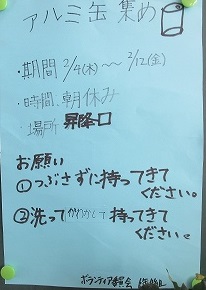 アルミ缶集め
・期間 2/4(木)～～2/12(金)
・時間 朝休み
・場所 昇降口
お願い
①つぶさずに持ってきて
ください。
②洗ってかわかして持ってきて
ください。
ボランティア委員会